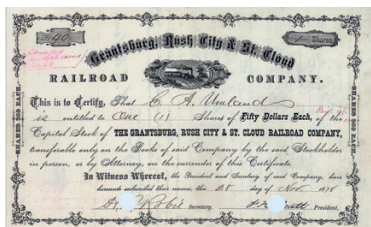 40
Shares
Grantsburg, Rush City & St. Cloud
RAILROAD COMPANY.
This is to Certify, That C. A.
is entitled to One (1) Shares of Fifty Dollars Each, of the
Capital Stock of THE GRANTSBURG, RUSH CITY & ST. CLOUD RAILROAD COMPANY,
transferable only on the Books of said Company by the said Stockholder
in person, or by Attorney, on the surrender of this Certificate.
In Witness Whereof, the President and Secretary of said Company, have
hereunto subscribed their names, this 28 day of Nov 1878
Secretary. President.
SHARES $50 EACH.
SHARES $50 EACH.